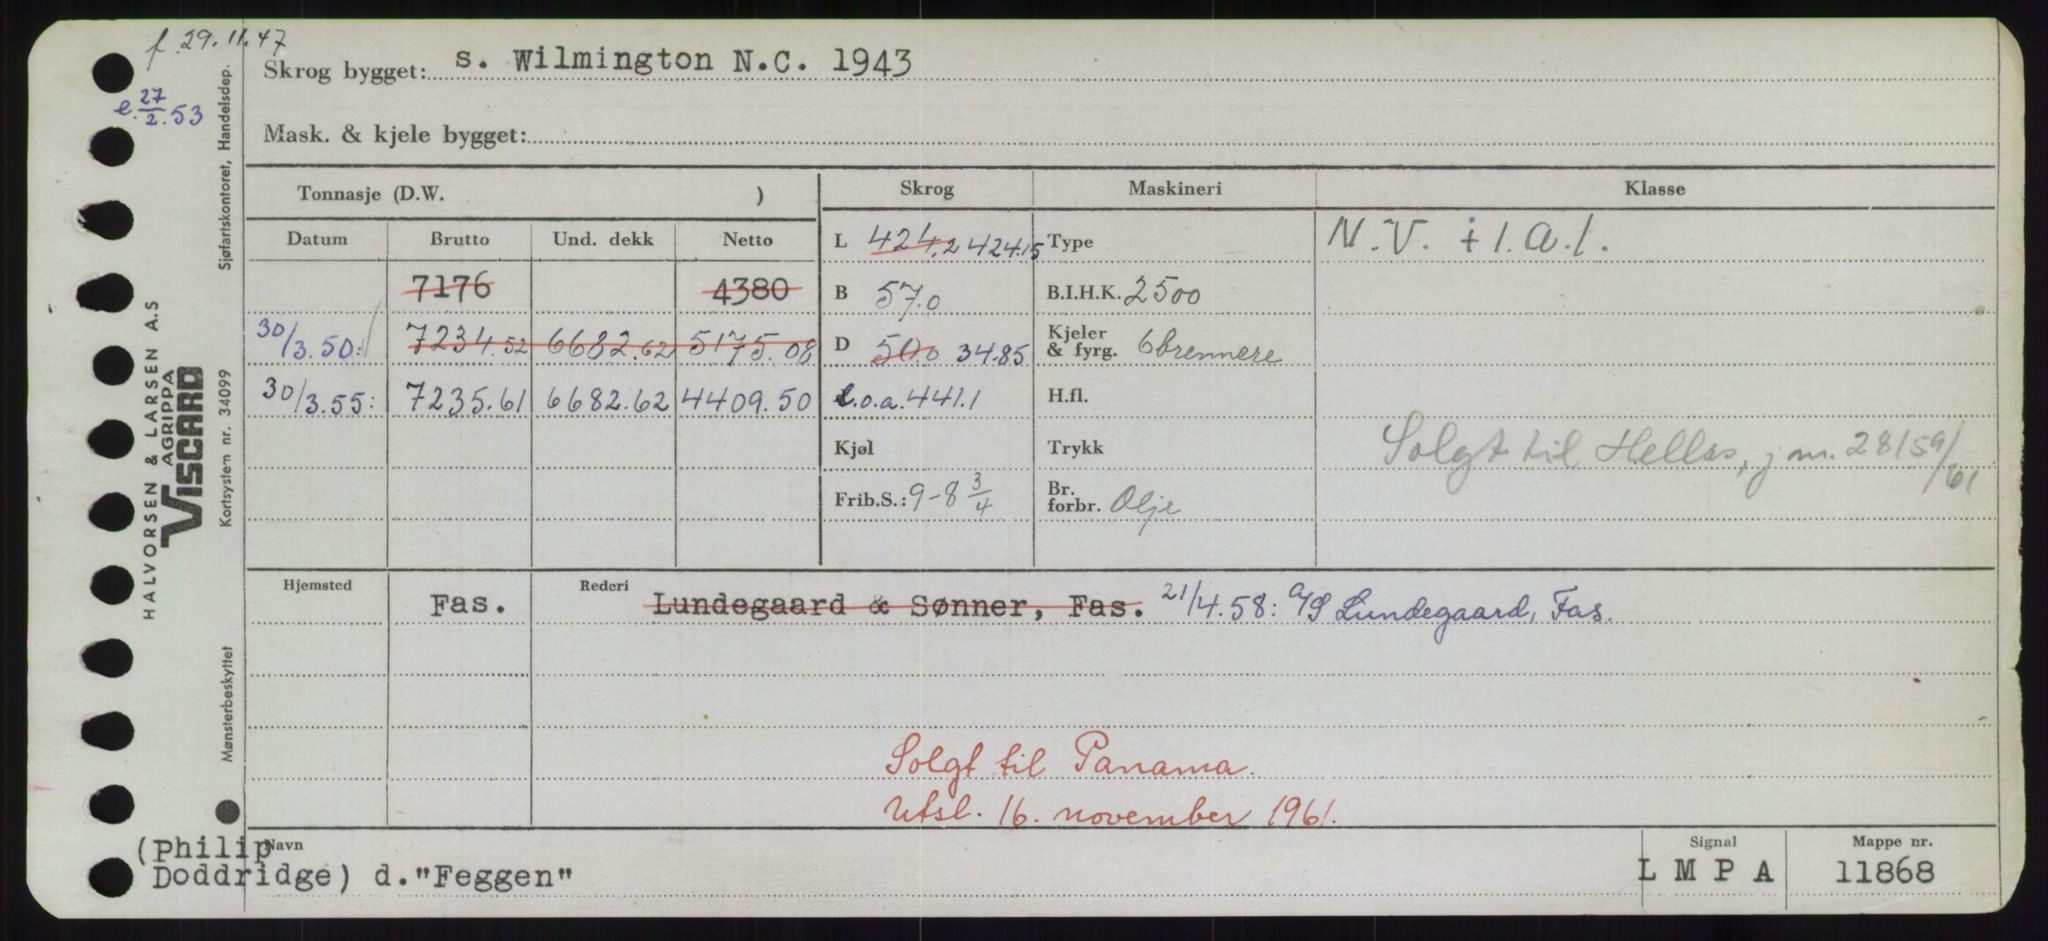 f. 29.11.47
e. 27/2.53
Skrog bygget: s. Wilmington N.C. 1943
Mask. & kjele bygget:
Tonnasje (D.W. ) Skrog Maskineri Klasse
Datum Brutto Und. dekk Netto L 424.2 424.15 Type N.V. + 1.A.1.
7176 4380 B 57.0 B.I.H.K. 2500
30/3.50: 7234.52 6682.62 5175.08 D 50.0 34.85 Kjeler & fyrg. 6 brennere
30/3.55: 7235.61 6682.62 4409.50 l.o.a. 441.1 H.fl.
Kjøl Trykk Solgt til Hellas, j m. 28159/61
Frib.S.: 9-8 3/4 Br. forbr. Olje
Hjemsted Fas. Rederi Lundegaard & Sønner, Fas. 21/4.58: A/S Lundegaard, Fas.
Solgt til Panama.
Utsl. 16. november 1961.
Navn Signal Mappe nr.
(Philip
Doddridge) d."Feggen" L M P A 11868
Sjøfartskontoret, Handelsdep.
Kortsystem nr. 34099
Mønsterbeskyttet
HALVORSEN & LARSEN A.S
AGRIPPA
VISCARD